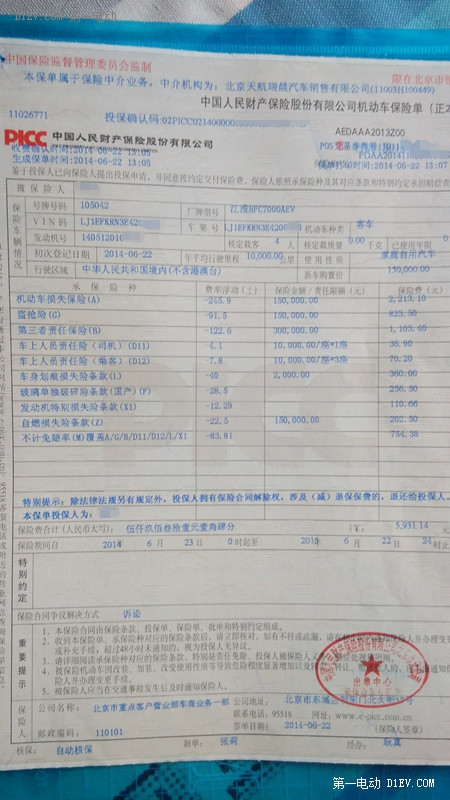 中国保险监督管理委员会监制
限在北京市
本保单属于保险中介业务，中介机构为：北京天航瑞晨汽车销售有限公司(11003H100449)
中国人民财产保险股份有限公司机动车保险单（正本
11026771
投保确认码:02PICC0214000
AEDAAA2013Z00
PICC 中国人民财产保险股份有限公司
收费确认时间:2014-06-22 13:05
生成保单时间:2014-06-22 13:05
鉴于投保人已向保险人提出投保申请，并同意按约定交付保险费，保险人依照承保险种及其对应条款和特别约定承担赔偿责
被保险人
保险车辆情况
号牌号码 105042 厂牌型号 江淮HFC7000AEV
VIN码 LJ1EFKRN3E42 车架号 LJ1EFKRN3E420 机动车种类 客车
发动机号 14051201 核定载客 4 人 核定载质量 0.00 千克 已使用年限
初次登记日期 2014-06-22 年平均行驶里程 10,000.00 公里 使用性质 家庭自用汽车
行驶区域 中华人民共和国境内(不含港澳台) 新车购置价 150,000.00
承保险种 费率浮动(±) 保险金额/责任限额(元) 保险费(元)
机动车损失保险(A) -245.9 150,000.00 2,213.10
盗抢险(G) -91.5 150,000.00 823.50
第三者责任保险(B) -122.6 300,000.00 1,103.40
车上人员责任险（司机）(D11) 4.1 10,000.00/座*1座 36.90
车上人员责任险（乘客）(D12) -7.8 10,000.00/座*3座 70.20
车身划痕损失险条款(L) -40 2,000.00 360.00
玻璃单独破碎险条款(国产)(F) -28.5 256.50
发动机特别损失险条款(X1) -12.29 110.66
自燃损失险条款(Z) -22.5 150,000.00 202.50
不计免赔率(M)覆盖A/G/B/D11/D12/L/X1 -83.81 754.38
特别提示：除法律法规另有规定外，投保人拥有保险合同解除权，涉及（减）退保保费的，退还给投保人。
本保单投保人为：
保险费合计(人民币大写)： 伍仟玖佰叁拾壹元壹角肆分 (¥： 5,931.14 元)
保险期间自 2014 年 6 月 23 日 0 时起至 2015 年 6 月 22 日 24 时止
特别约定
保险合同争议解决方式 诉讼
重要提示
1. 本保险合同由保险条款、投保单、保险单、批单和特别约定组成。
2. 收到本保险单、承保险种对应的保险条款后，请立即核对，如有不符或疏漏，请在
或补充手续；超过48小时未通知的，视为投保人无异议。
3. 请详细阅读承保险种对应的保险条款，特别是责任免除、
4. 被保险机动车因改装、加装、改变使用性质等导致危险程度显著增加以及转
险人并办理变更手续。
5. 被保险人应当在交通事故发生后及时通知保险人。
出单中心
保险人
公司名称： 北京市重点客户营业部车商业务一部
公司地址： 北京市东城区
联系电话：95518 网址：www.e-picc.com.cn
邮政编码： 110101 签单日期： 2014-06-22 (保险人签章)
核保： 自动核保 制单： 张莉 经办：
第一电动 D1EV.COM